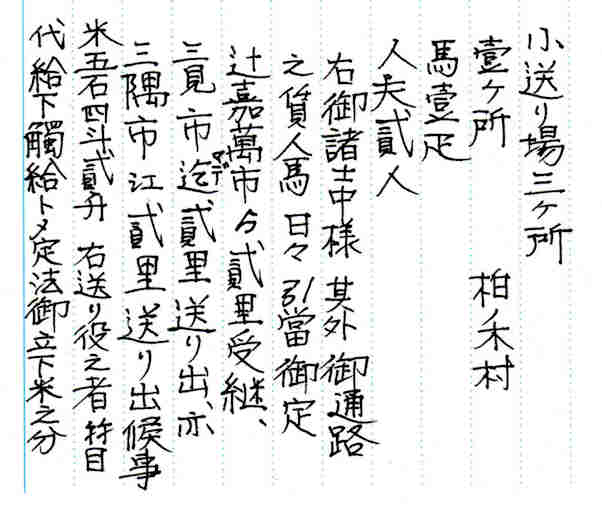 小送り場三ヶ所
壹ヶ所 柏ノ木村
馬壹疋
人夫貳人
右御諸士中様 其外御通路
之賃人馬 日々引當御定
辻嘉萬市ゟ貳里受継、
三見市迄マデ貳里送り出、亦
三隅市江貳里送り出候事
米五石四斗貳升 右送り役之者符目
代給下觸給トメ定法御立下米之分